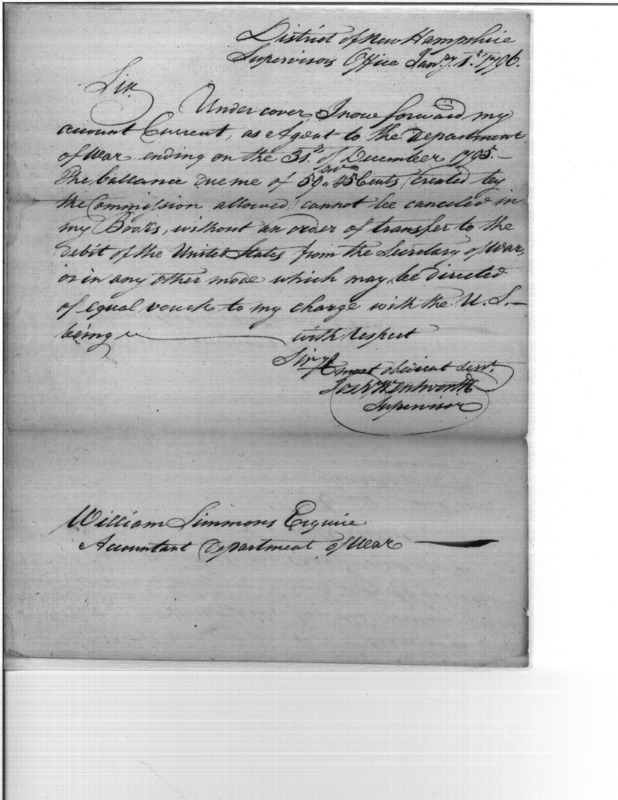 District of New Hampshire
Supervisors Office Jany. 1st. 1796.
Sir
Under cover, I now forward my
account Current, as Agent to the Department
of War ending on the 31st. of December 1795.—
The ballance due me of 50. 45 Cents, created by
the Commission allowed, cannot be canceled in
my Books, without an order of transfer to the
debit of the United States from the Secretary of War,
or in any other mode which may be directed
of equal vouch to my charge with the U. S.—
being
with respect
Sir
most obedient Servt.
Wentworth
Supervisor
William Simmons Esquire
Accountant Department of War